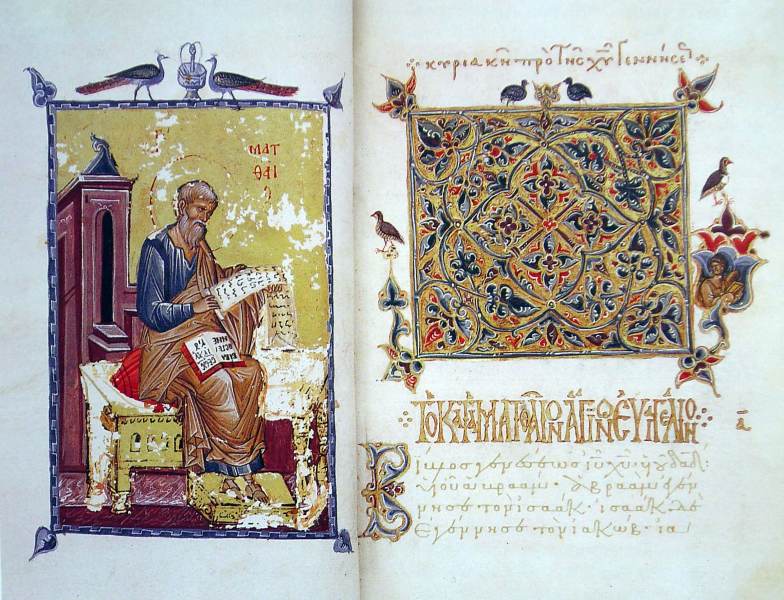 ΜΑΤ
ΘΑΙ
Ο
ΚΥΡΙΑΚῆ ΠΡΟ Τῆς ΧΥ ΓΕΝΝΗΣΕ
ΤΟ ΚΑΤΑ ΜΑΤΘΑΙΟΝ ἍΓΙΟΝ ΕΥΑΓΓΕΛΙΟΝ
Βίβλος γενέσεως ἰῦ χῦ ὑῦ δαδ·
ὑοῦ ἀβραάμ· ἀβραὰμ ἐγέν
νησε τὸν ἰσαάκ· ἰσαὰκ δὲ
ἐγέννησε τὸν ἰακώβ· ἰα